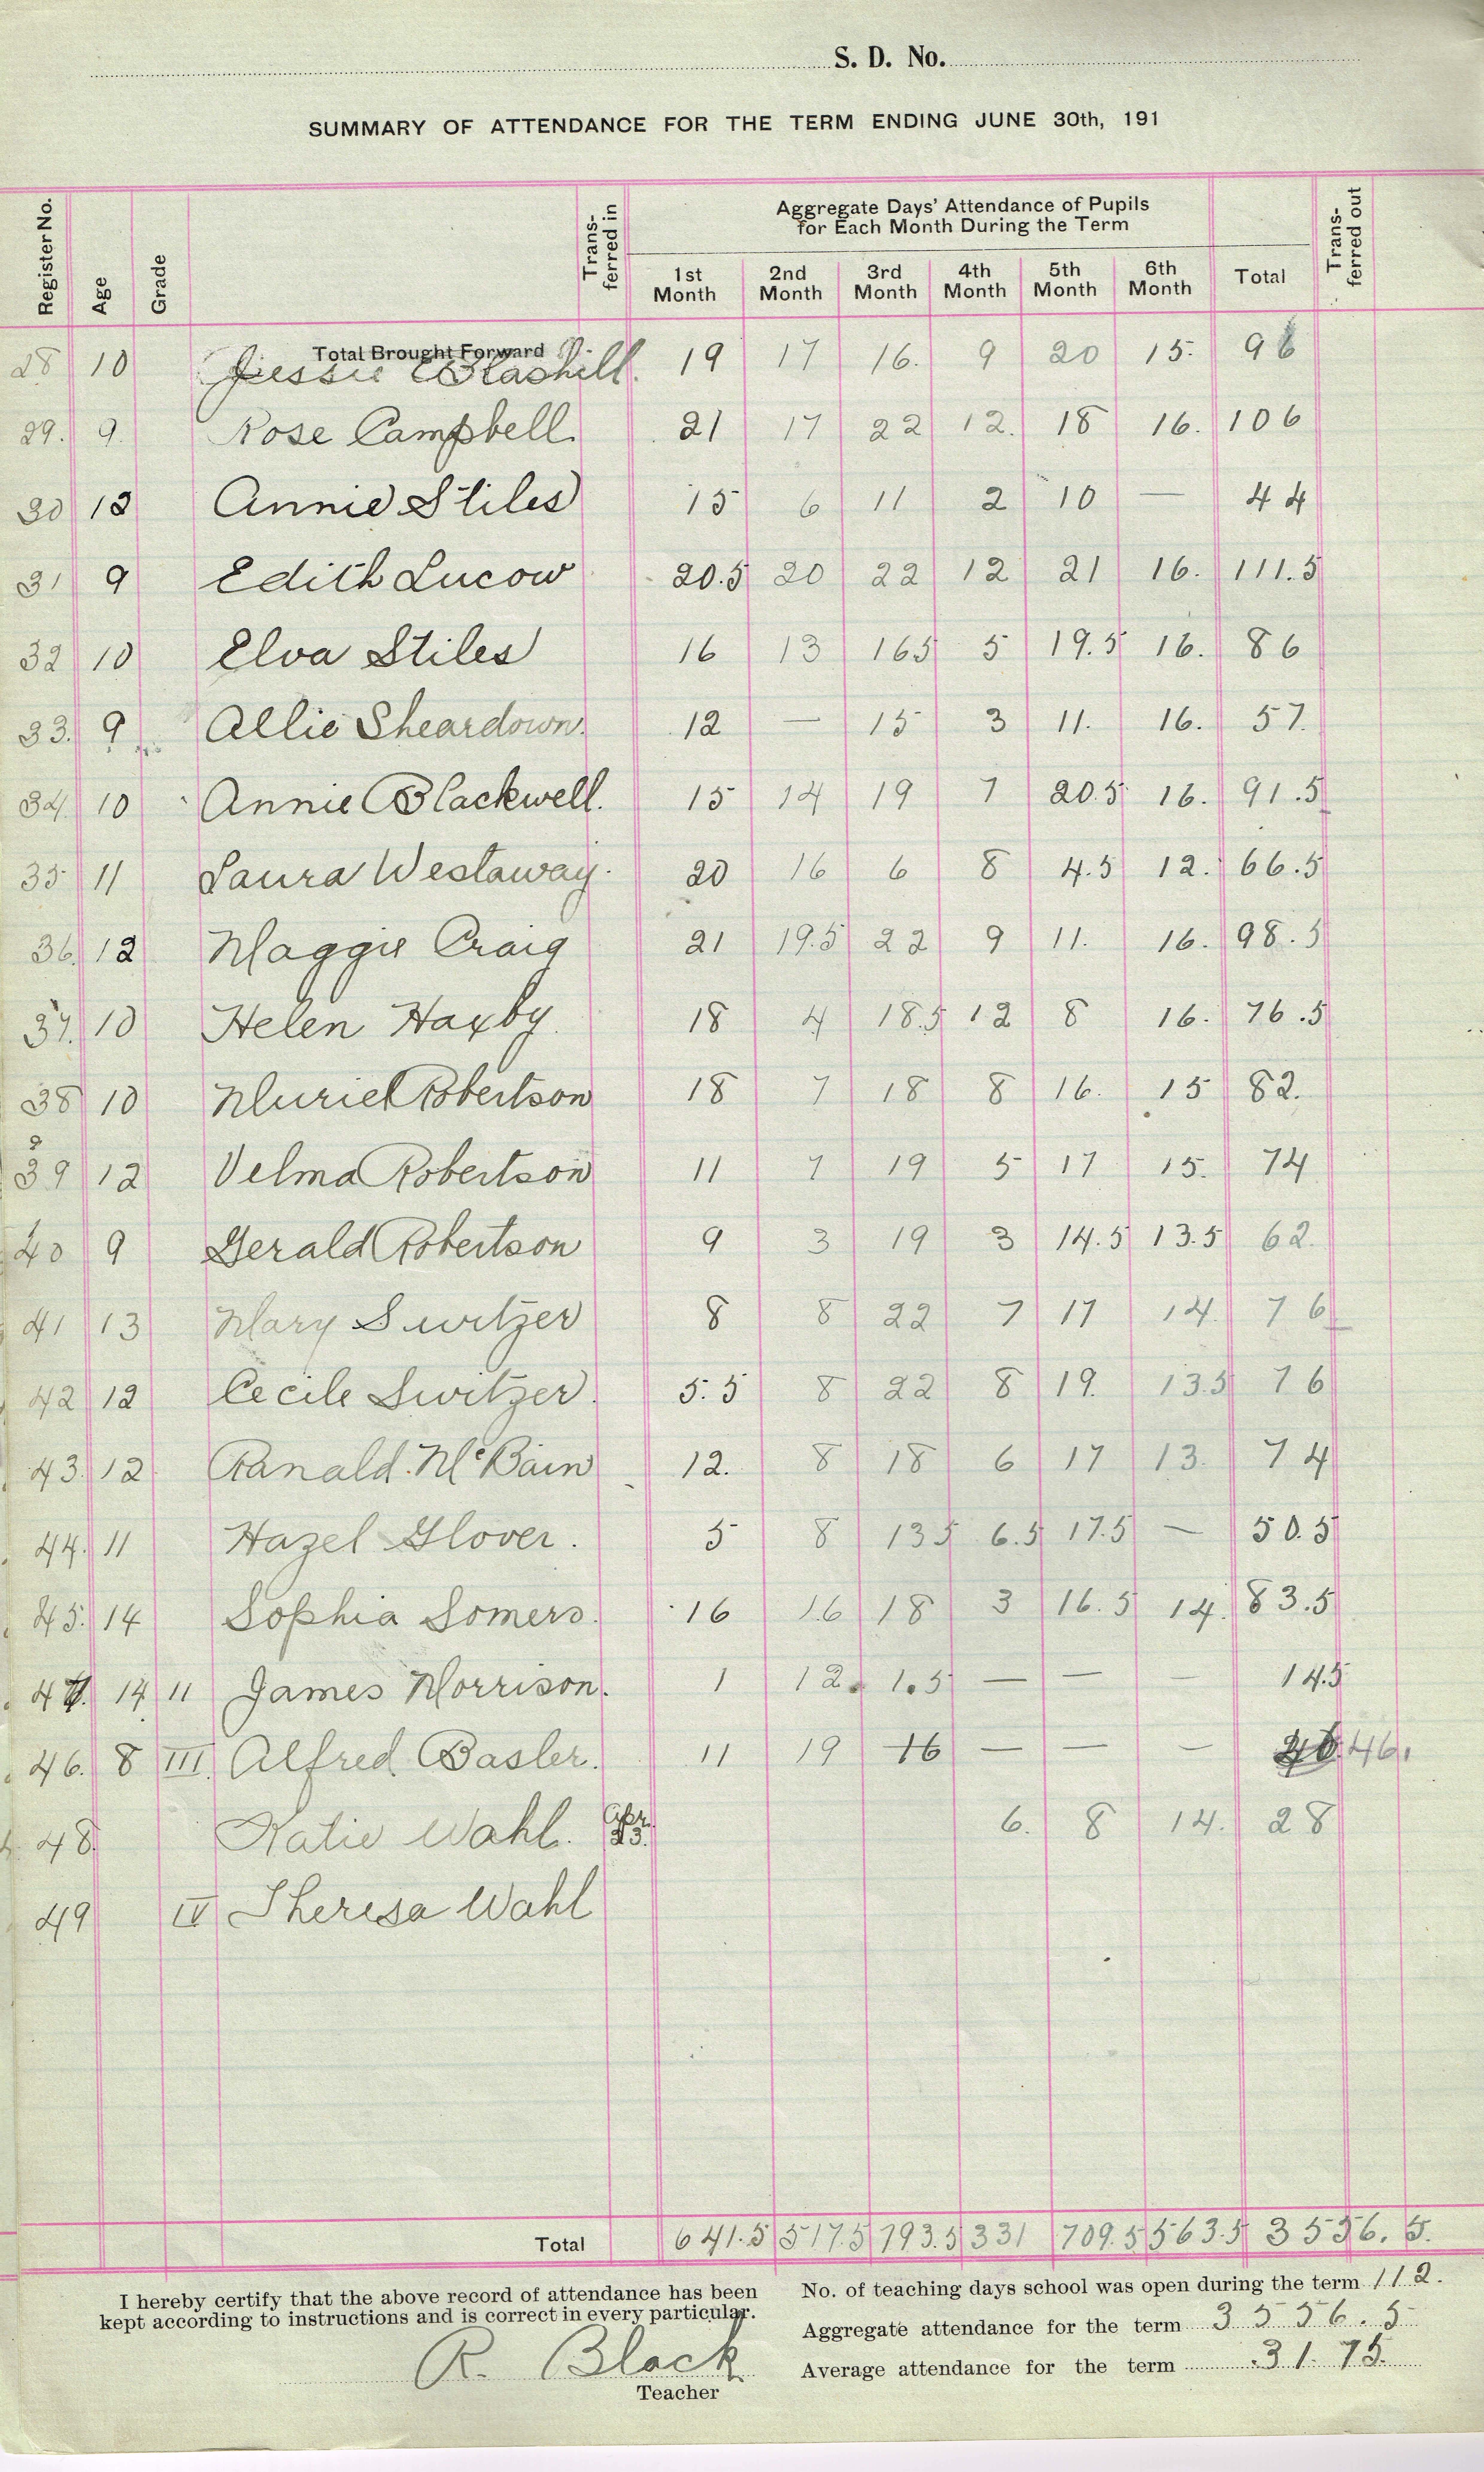 S. D. No.
SUMMARY OF ATTENDANCE FOR THE TERM ENDING JUNE 30th, 191
Register No. Age Grade Trans-ferred in Aggregate Days' Attendance of Pupils for Each Month During the Term Trans-ferred out
1st Month 2nd Month 3rd Month 4th Month 5th Month 6th Month Total
Total Brought Forward
28 10 Jessie Blashill. 19 17 16. 9 20 15. 96
29. 9 Rose Campbell. 21 17 22 12. 18 16. 106
30 12 Annie Stiles 15 6 11 2 10 — 44
31 9 Edith Lucow 20.5 20 22 12 21 16. 111.5
32 10 Elva Stiles 16 13 165 5 19.5 16. 86
33. 9 Allie Sheardown. 12 — 15 3 11. 16. 57.
34 10 Annie Blackwell. 15 14 19 7 20.5 16. 91.5
35 11 Laura Westaway. 20 16 6 8 4.5 12. 66.5
36. 12 Maggie Craig 21 19.5 22 9 11. 16. 98.5
37. 10 Helen Haxby. 18 4 18.5 12 8 16. 76.5
38 10 Muriel Robertson 18 7 18 8 16. 15 82.
39 12 Velma Robertson 11 7 19 5 17 15. 74
40 9 Gerald Robertson 9 3 19 3 14.5 13.5 62.
41 13 Mary Switzer 8 8 22 7 17 14. 76
42 12 Cecile Switzer. 5.5 8 22 8 19. 13.5 76
43. 12 Ranald McBain 12. 8 18 6 17 13. 74
44. 11 Hazel Glover. 5 8 135 6.5 17.5 — 50.5
45. 14 Sophia Somers. 16 16 18 3 16.5 14. 83.5
47. 14 11 James Morrison. 1 12. 1.5 — — — 14.5
46. 8 III Alfred Basler. 11 19 16 — — — 46.
48. Katie Wahl. Apr. 23. 6. 8 14. 28
49 IV Theresa Wahl
Total 641.5 517.5 793.5 331 709.5 563.5 3556.5.
I hereby certify that the above record of attendance has been
kept according to instructions and is correct in every particular.
R. Black
Teacher
No. of teaching days school was open during the term 112.
Aggregate attendance for the term 3556.5
Average attendance for the term 31.75